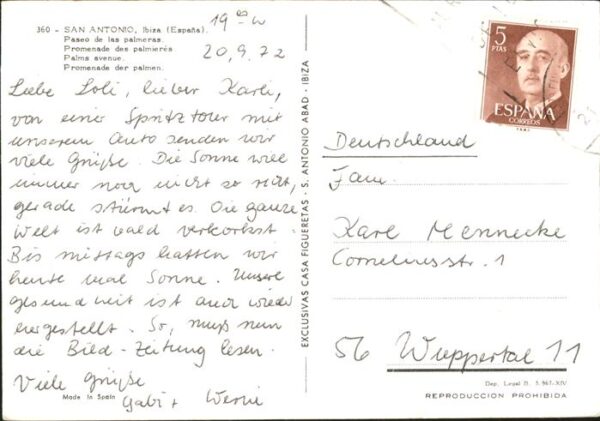 360 - SAN ANTONIO, Ibiza (España).
Paseo de las palmeras.
Promenade des palmierés
Palms avenue.
Promenade der palmen.
19 00 w
20.9.72
Liebe Loli, lieber Karli,
von einer Spritztour mit
unserem Auto senden wir
viele Grüße. Die Sonne will
immer noch nicht so recht,
gerade stürmt es. Die ganze
Welt ist wald verkorkst.
Bis mittags hatten wir
heute mal Sonne. Unsere
Gesundheit ist auch wieder
hergestellt. So, muß nun
die Bild-Zeitung lesen.
Viele Grüße
Gabi + Werni
Made in Spain
EXCLUSIVAS CASA FIGUERETAS - S. ANTONIO ABAD - IBIZA
5
PTAS
ESPAÑA
CORREOS
Deutschland
Fam.
Karl Mennecke
Corneliusstr. 1
56 Wuppertal 11
Dep. Legal B. 5.967-XIV
REPRODUCCION PROHIBIDA